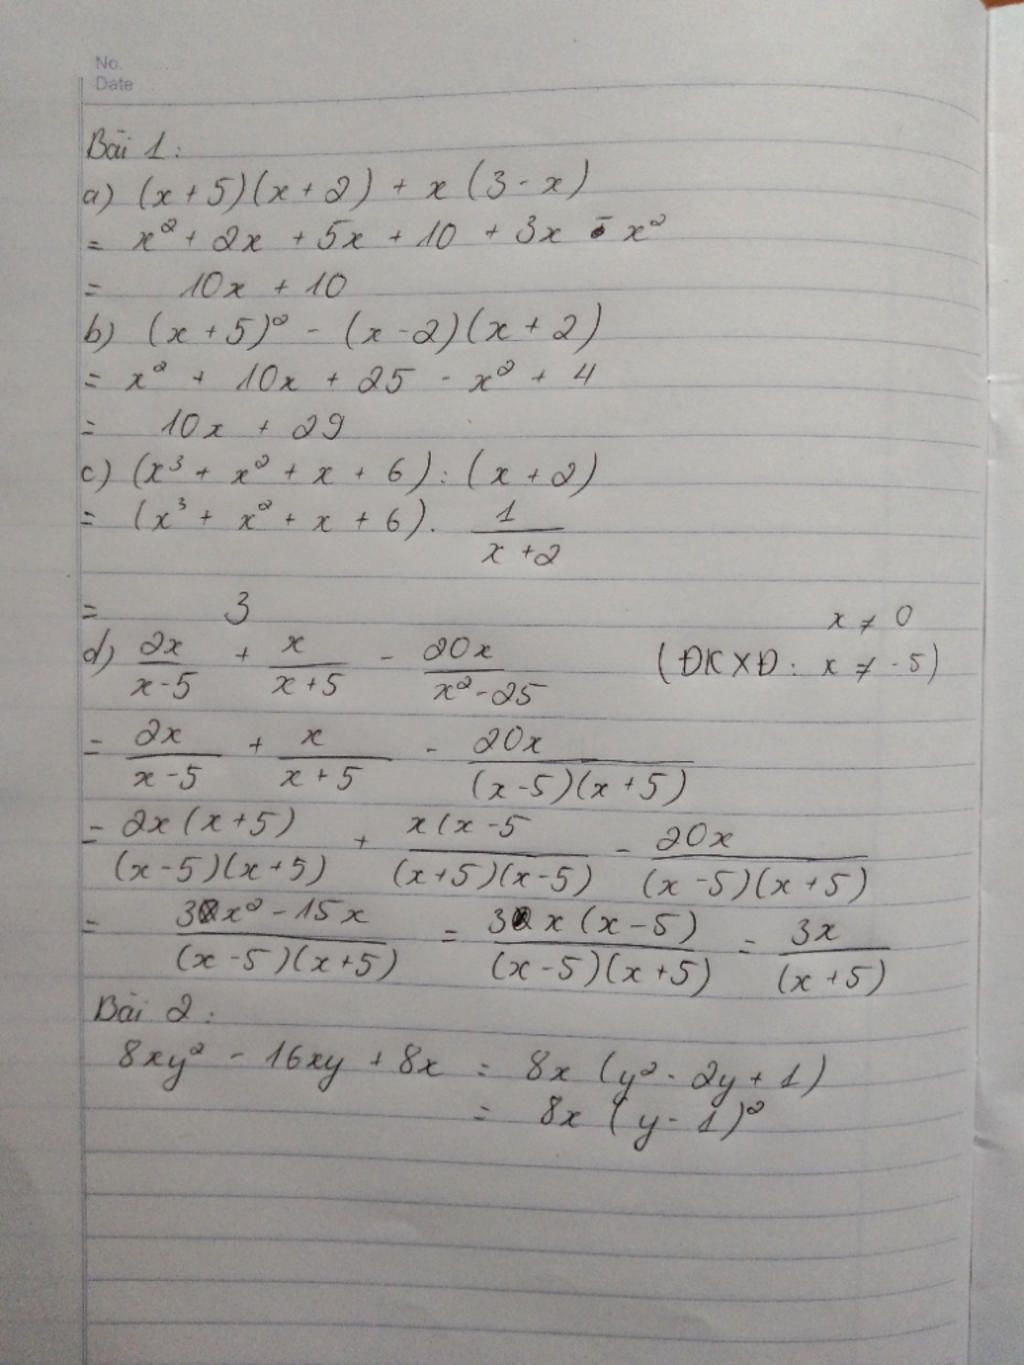 No.
Date
Bài 1:
a) (x + 5)(x + 2) + x (3 - x)
= x² + 2x + 5x + 10 + 3x - x²
= 10x + 10
b) (x + 5)² - (x - 2)(x + 2)
= x² + 10x + 25 - x² + 4
= 10x + 29
c) (x³ + x² + x + 6) : (x + 2)
= (x³ + x² + x + 6) . 1/(x + 2)
= 3
x ≠ 0
d) 2x/(x - 5) + x/(x + 5) - 20x/(x² - 25) (ĐKXĐ: x ≠ -5)
= 2x/(x - 5) + x/(x + 5) - 20x/((x - 5)(x + 5))
= 2x(x + 5)/((x - 5)(x + 5)) + x(x - 5/((x + 5)(x - 5)) - 20x/((x - 5)(x + 5))
= 3x² - 15x/((x - 5)(x + 5)) = 3x(x - 5)/((x - 5)(x + 5)) = 3x/(x + 5)
Bài 2:
8xy² - 16xy + 8x = 8x (y² - 2y + 1)
= 8x (y - 1)²